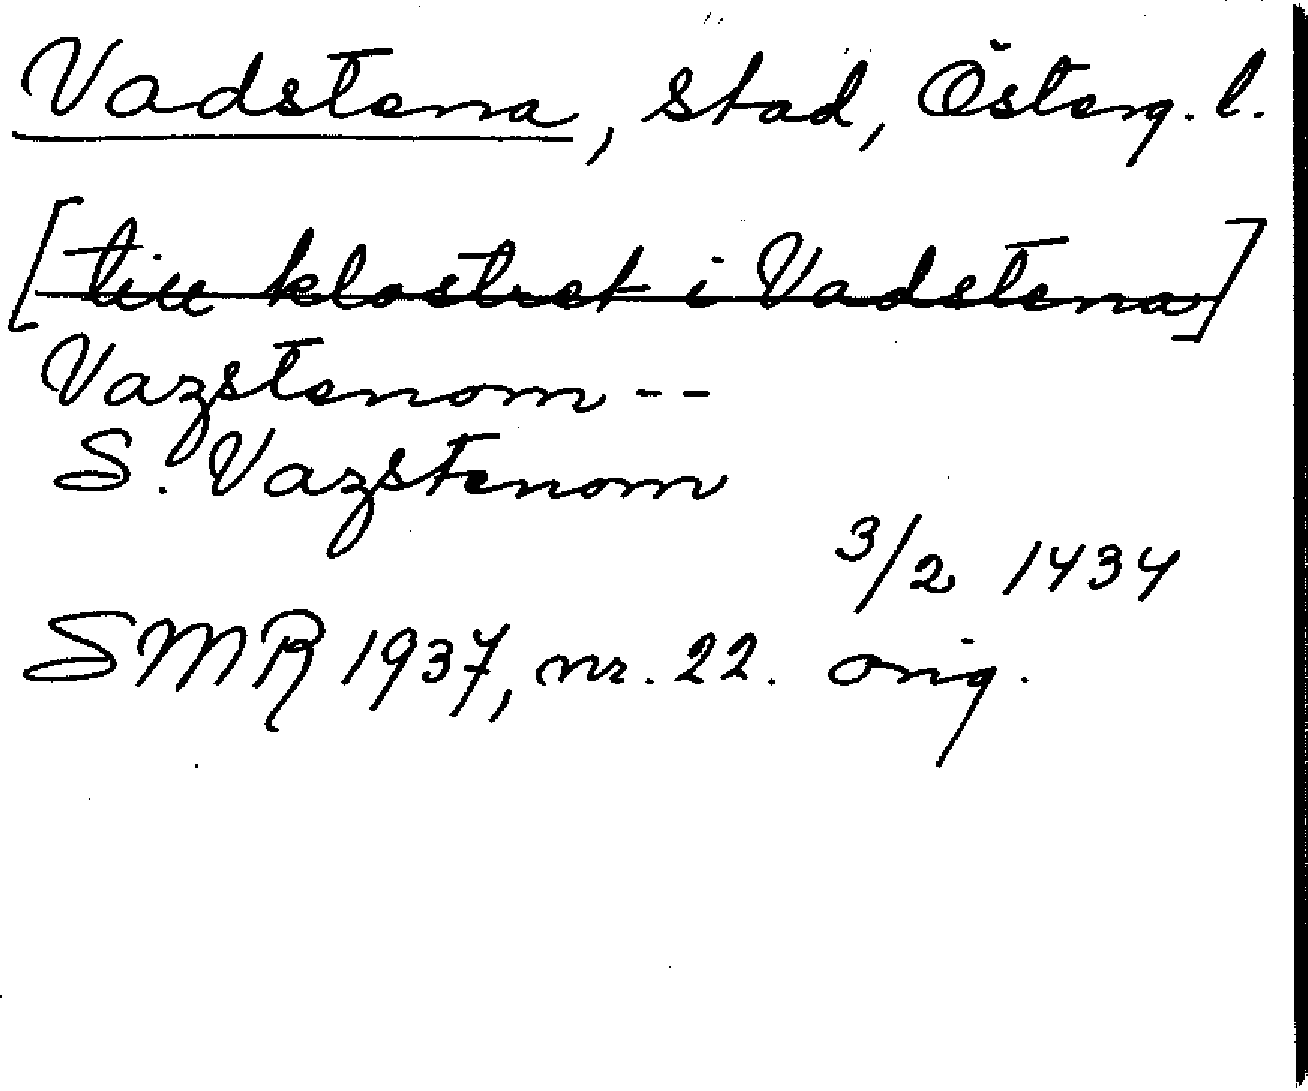 Vadstena, stad, Österg. l.
[till klostret i Vadstena]
Vazstenom --
S. Vazstenom
3/2 1434
SMR 1937, nr. 22. orig.